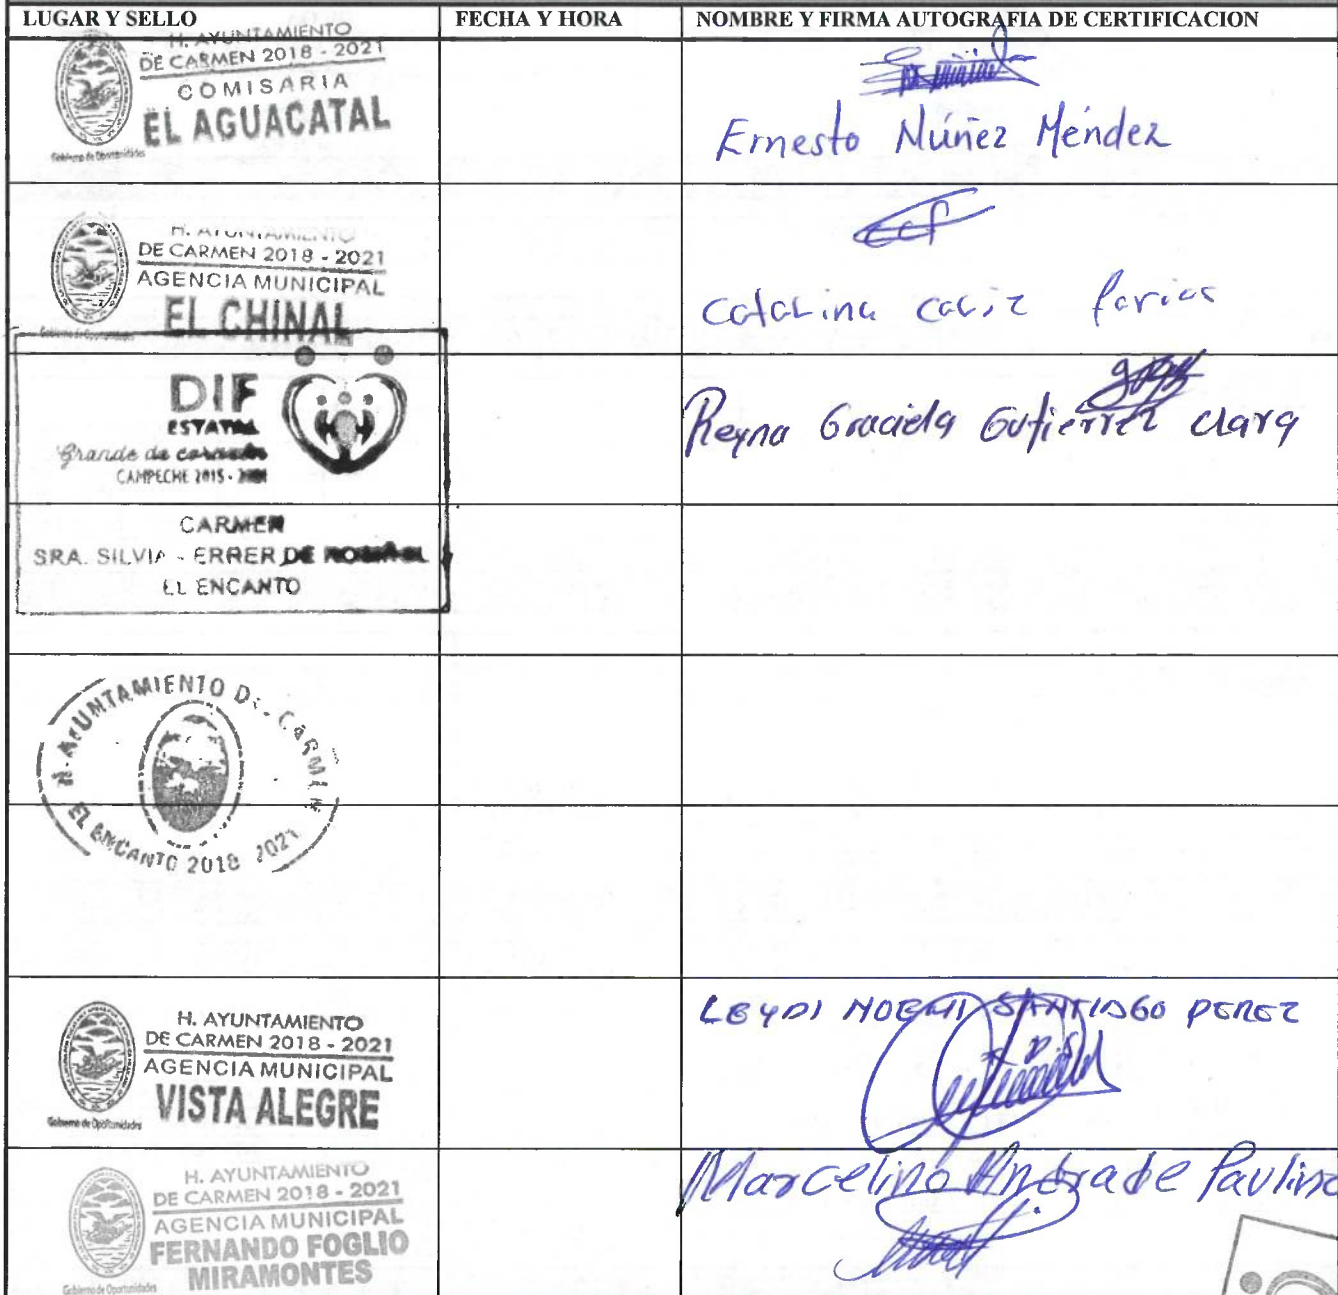 LUGAR Y SELLO
FECHA Y HORA
NOMBRE Y FIRMA AUTOGRAFIA DE CERTIFICACION
H. AYUNTAMIENTO
DE CARMEN 2018 - 2021
COMISARIA
EL AGUACATAL
Gobierno de Oportunidades
Ernesto Núñez Méndez
H. AYUNTAMIENTO
DE CARMEN 2018 - 2021
AGENCIA MUNICIPAL
EL CHINAL
Gobierno de Oportunidades
Catalina
DIF
ESTATAL
Grande de corazón
CAMPECHE 2015 -
Reyna Graciela Gutierrez Clara
CARMEN
SRA. SILVIA - ERRER DE
EL ENCANTO
H. AYUNTAMIENTO DE CARMEN
EL ENCANTO 2018 2021
H. AYUNTAMIENTO
DE CARMEN 2018 - 2021
AGENCIA MUNICIPAL
VISTA ALEGRE
Gobierno de Oportunidades
LEYDI NOEMI SANTIAGO PEREZ
H. AYUNTAMIENTO
DE CARMEN 2018 - 2021
AGENCIA MUNICIPAL
FERNANDO FOGLIO
MIRAMONTES
Gobierno de Oportunidades
Marcelino Andrade Paulino